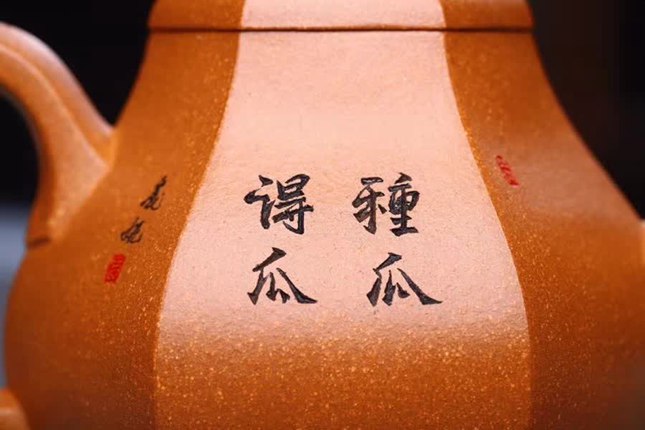 種瓜
得瓜